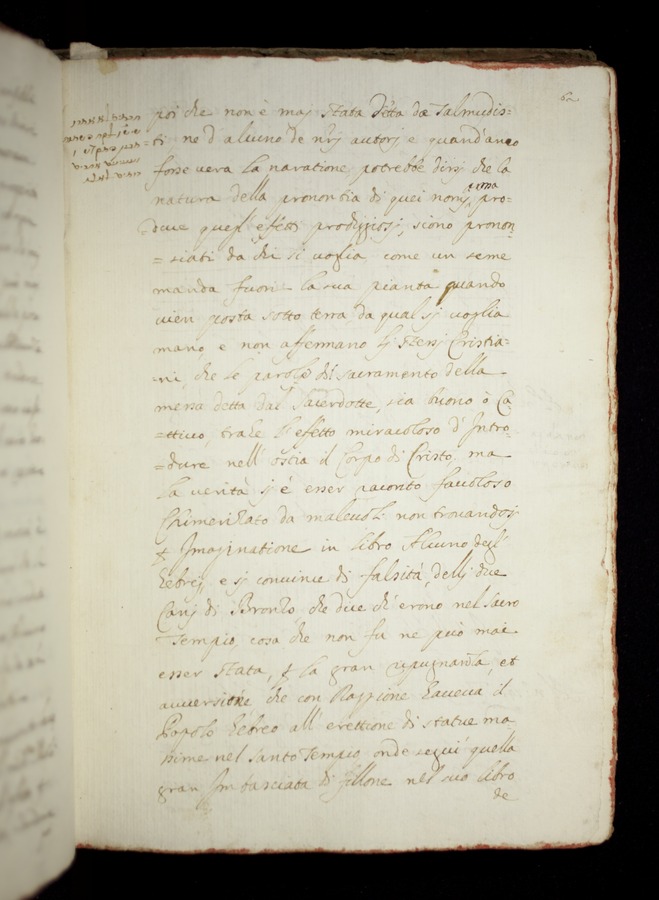 62
poi che non è maj stata detta da Talmudis=
ti ne d'alcuno de nrj autorj e quand'anco
forse vera la naratione potrebbe dirsj che la
natura della prenontia di quei nomj pro=
=duce quest'efetti prodiggiosj, siano pronon
=siati da chi si voglia come un seme
manda fuori la sua pianta quando
vien posta sotto terra da qual sj voglia
mano, e non affermano lj stessj Cristia=
=ni, che le parole di sacramento della
messa detta dal Sacerdotte, sia buono ò Ca
=ttivo, trahe l'efetto miracoloso d'Intro=
=dure nell'ostia il Corpo di Cristo. ma
la verità sj è esser raconto favoloso
Chimerizato da malevoli non trovandosj
Imaginatione in libro Alcuno degl'
hebrej, e sj convince di falsità dellj due
Canj di Bronzo che dice ch'erono nel Sacro
Tempio, cosa che non fu ne può mai
esser stata, la gran repugnanza, et
avversione che con Raggione haveva il
Popolo hebreo all'erettione di statue ma
sime nel Santo Tempio onde seguì quella
gran Imbasciata di fillone nel suo libro
de